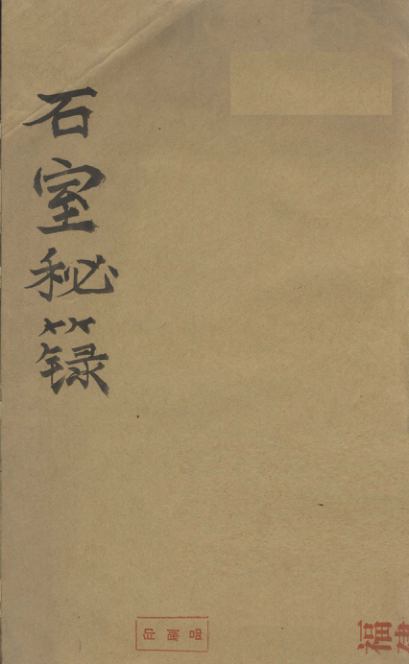 石室秘籙
福建